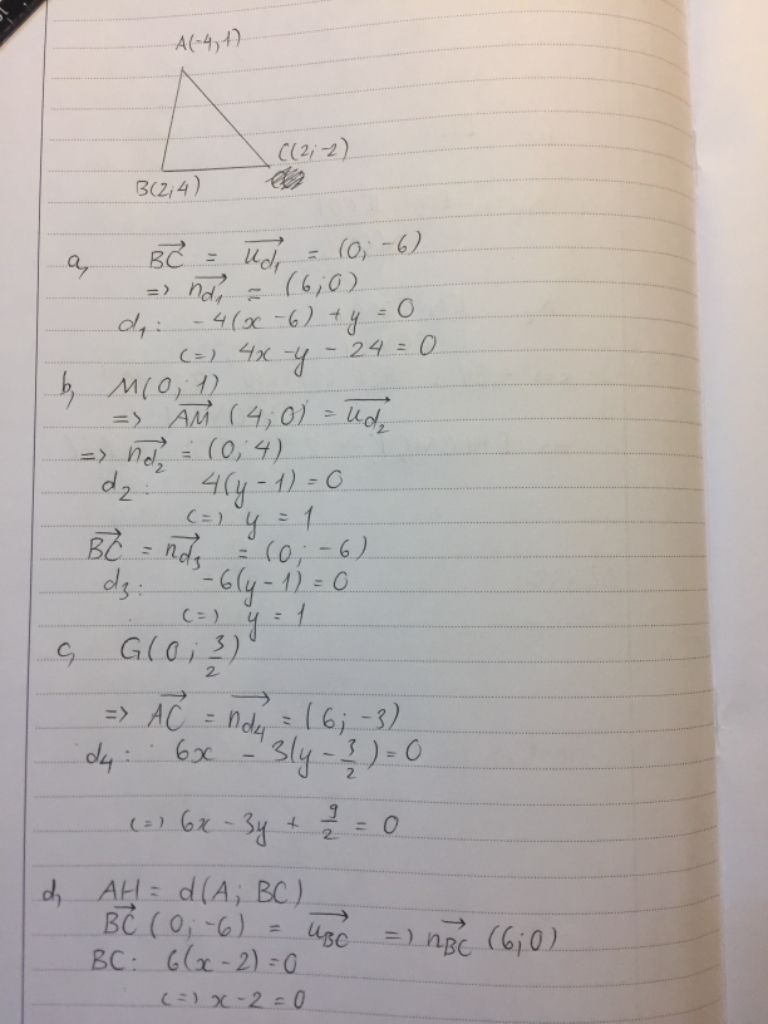 A(-4; 1)
C(2; -2)
B(2; 4)
a, $\overrightarrow{BC} = \overrightarrow{u_{d_1}} = (0; -6)$
=> $\overrightarrow{n_{d_1}} = (6; 0)$
d₁: -4(x - 6) + y = 0
(=) 4x - y - 24 = 0
b, M(0; 1)
=> $\overrightarrow{AM}$ (4; 0) = $\overrightarrow{u_{d_2}}$
=> $\overrightarrow{n_{d_2}}$ = (0; 4)
d₂: 4(y - 1) = 0
(=) y = 1
$\overrightarrow{BC} = \overrightarrow{n_{d_3}} = (0; -6)$
d₃: -6(y - 1) = 0
(=) y = 1
c, G(0; $\frac{3}{2}$)
=> $\overrightarrow{AC} = \overrightarrow{n_{d_4}} = (6; -3)$
d₄: 6x - 3(y - $\frac{3}{2}$) = 0
(=) 6x - 3y + $\frac{9}{2}$ = 0
d, AH = d(A; BC)
$\overrightarrow{BC}$ (0; -6) = $\overrightarrow{u_{BC}}$ => $\overrightarrow{n_{BC}}$ (6; 0)
BC: 6(x - 2) = 0
(=) x - 2 = 0